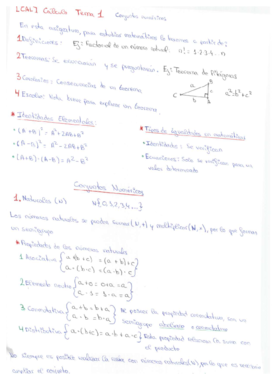 [CAL] Cálculo Tema 1 Conjuntos numéricos
En esta asignatura, para establecer matemáticas la haremos a partir de:
1 Definiciones: Ej: Factorial de un número natural. n! = 1·2·3·4·...·n
2 Teoremas: Se enuncian y se demuestran. Ej: Teorema de Pitágoras
3 Corolarios: Consecuencias de un teorema
a²=b²+c²
4 Escolio: Nota breve para explicar un teorema
* Identidades Elementales:
· (A+B)² = A²+2AB+B²
· (A-B)² = A²-2AB+B²
· (A+B)·(A-B) = A²-B²
* Tipos de igualdades en matemáticas
· Identidades: Se verifican
· Ecuaciones: Solo se verifican para un
valor determinado
Conjuntos Numéricos
1. Naturales (N) N{0,1,2,3,4,...}
Los números naturales se pueden sumar (N,+) y multiplicar (N,·), por lo que forman
un semigrupo
* Propiedades de los números naturales
1 Asociativa { a+(b+c) = (a+b)+c
a·(b·c) = (a·b)·c }
2 Elemento neutro { a+0=0+a=a
a·1=1·a=a }
3 Conmutativa { a+b=b+a
a·b=b·a }
Al poseer la propiedad conmutativa, son un
semigrupo abeliano o conmutativo
4 Distributiva { a·(b+c)=a·b+a·c } Esta propiedad relaciona la suma con
el producto
No siempre es posible realizar la resta con números naturales (N), por lo que es necesario
ampliar el conjunto.